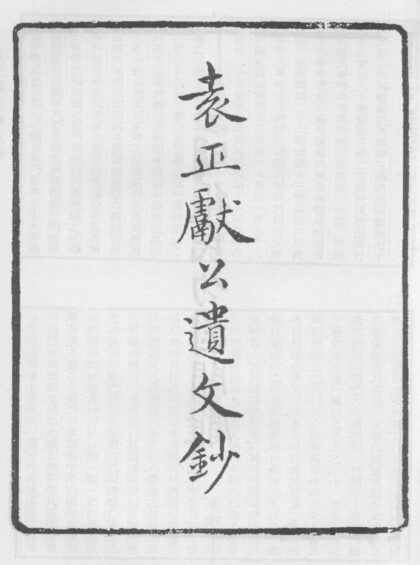 袁正獻公遺文鈔